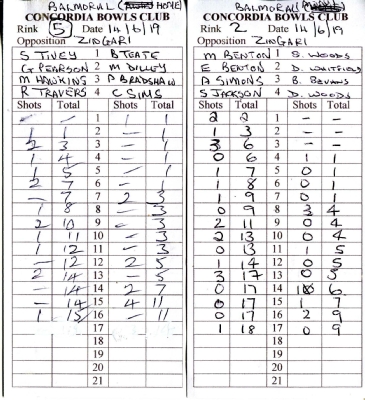 BALMORAL HOME)
CONCORDIA BOWLS CLUB
Rink 5 Date 14/6/19
Opposition ZINGARI
S TIVEY 1 B TEATE
G PEARSON 2 M DILLEY
M HAWKINS 3 P BRADSHAW
R TRAVERS 4 C SIMS
Shots Total Shots Total
- - 1 1 1
1 1 2 - 1
2 3 3 - 1
1 4 4 - 1
1 5 5 - 1
2 7 6 - 1
- 7 7 2 3
1 8 8 - 3
2 10 9 - 3
1 11 10 - 3
1 12 11 - 3
- 12 12 2 5
2 14 13 - 5
- 14 14 2 7
- 14 15 4 11
1 15 16 - 11
17
18
19
20
21
BALMORAL
CONCORDIA BOWLS CLUB
Rink 2 Date 14/6/19
Opposition ZINGARI
M BENTON 1 S. WOODS
E BENTON 2 D. WHITFIELD
A SIMONS 3 B. BEVANS
S JACKSON 4 D. WOODS
Shots Total Shots Total
2 2 1 - -
1 3 2 - -
3 6 3 - -
0 6 4 1 1
1 7 5 0 1
1 8 6 0 1
1 9 7 0 1
0 9 8 3 4
2 11 9 0 4
2 13 10 0 4
0 13 11 1 5
1 14 12 0 5
3 17 13 0 5
0 17 14 1 6
0 17 15 1 7
0 17 16 2 9
1 18 17 0 9
18
19
20
21